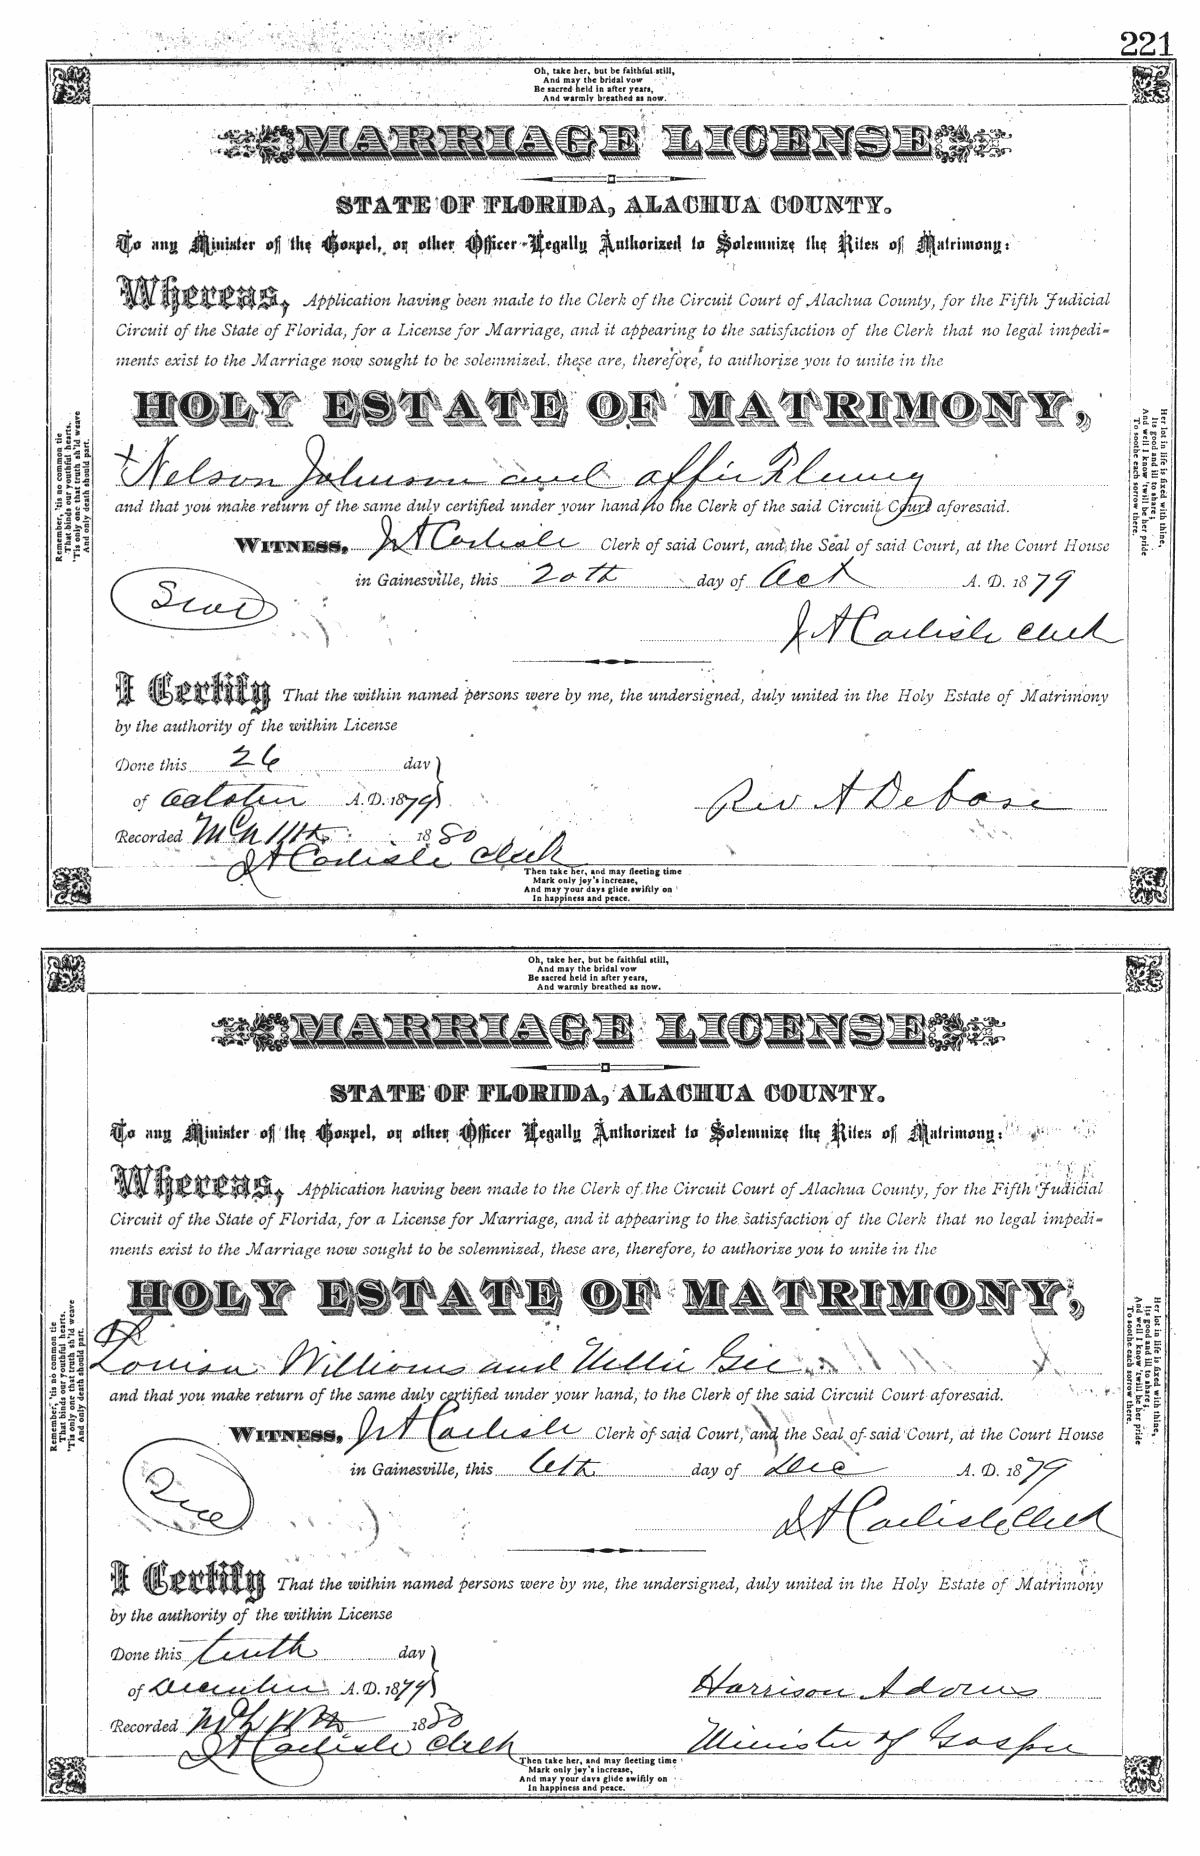 221
Oh, take her, but be faithful still,
And may the bridal vow
Be sacred held in after years,
And warmly breathed as now.
MARRIAGE LICENSE
STATE OF FLORIDA, ALACHUA COUNTY.
To any Minister of the Gospel, or other Officer Legally Authorized to Solemnize the Rites of Matrimony:
Whereas, Application having been made to the Clerk of the Circuit Court of Alachua County, for the Fifth Judicial
Circuit of the State of Florida, for a License for Marriage, and it appearing to the satisfaction of the Clerk that no legal impedi-
ments exist to the Marriage now sought to be solemnized, these are, therefore, to authorize you to unite in the
HOLY ESTATE OF MATRIMONY,
Nelson Johnson and
and that you make return of the same duly certified under your hand, to the Clerk of the said Circuit Court aforesaid.
WITNESS, J A Carlisle Clerk of said Court, and the Seal of said Court, at the Court House
in Gainesville, this 20th day of Oct A. D. 1879
Seal
J A Carlisle Clerk
I Certify That the within named persons were by me, the undersigned, duly united in the Holy Estate of Matrimony
by the authority of the within License
Done this 26 day
of October A. D. 1879
Rev A Debose
Recorded Mch 11th 1880
J A Carlisle Clerk
Then take her, and may fleeting time
Mark only joy's increase,
And may your days glide swiftly on
In happiness and peace.
Remember, 'tis no common tie
That binds our youthful hearts,
'Tis only one that truth sh'ld weave
And only death should part.
Her lot in life is fixed with thine,
Its good and ill to share;
And well I know 'twill be her pride
To soothe each sorrow there.
Oh, take her, but be faithful still,
And may the bridal vow
Be sacred held in after years,
And warmly breathed as now.
MARRIAGE LICENSE
STATE OF FLORIDA, ALACHUA COUNTY.
To any Minister of the Gospel, or other Officer Legally Authorized to Solemnize the Rites of Matrimony:
Whereas, Application having been made to the Clerk of the Circuit Court of Alachua County, for the Fifth Judicial
Circuit of the State of Florida, for a License for Marriage, and it appearing to the satisfaction of the Clerk that no legal impedi-
ments exist to the Marriage now sought to be solemnized, these are, therefore, to authorize you to unite in the
HOLY ESTATE OF MATRIMONY,
Louisa Williams and Nellie Gee
and that you make return of the same duly certified under your hand, to the Clerk of the said Circuit Court aforesaid.
WITNESS, J A Carlisle Clerk of said Court, and the Seal of said Court, at the Court House
in Gainesville, this 6th day of Dec A. D. 1879
Seal
J A Carlisle Clerk
I Certify That the within named persons were by me, the undersigned, duly united in the Holy Estate of Matrimony
by the authority of the within License
Done this tenth day
of December A. D. 1879
Harrison Adams
Recorded Mch 11th 1880
Minister of Gospel
J A Carlisle Clerk
Then take her, and may fleeting time
Mark only joy's increase,
And may your days glide swiftly on
In happiness and peace.
Remember, 'tis no common tie
That binds our youthful hearts.
'Tis only one that truth sh'ld weave
And only death should part.
Her lot in life is fixed with thine,
Its good and ill to share;
And well I know 'twill be her pride
To soothe each sorrow there.